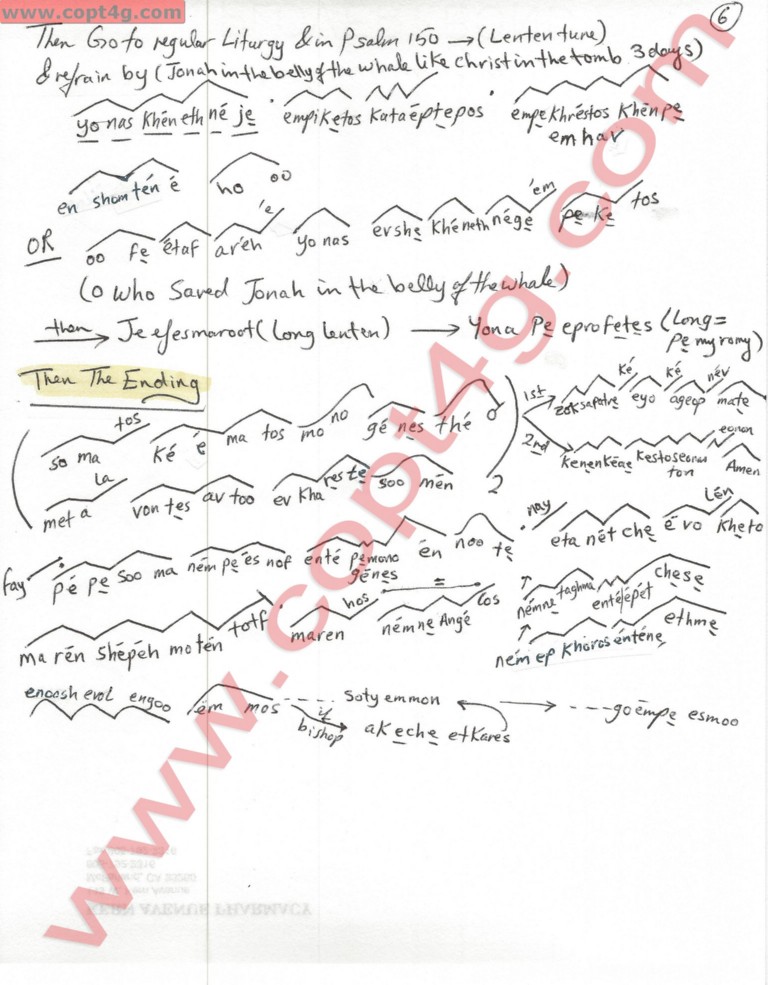 www.copt4g.com
6
Then Go to regular Liturgy & in Psalm 150 → (Lenten tune)
& refrain by (Jonah in the belly of the whale like christ in the tomb 3 days)
yo nas khén eth né je empi ketos kata ép te pos empe khréstos khén pe
em hav
en shom tén é ho oo
OR oo fe étaf areh 'e yo nas evshe khé neth nége 'em pe ke tos
(O who Saved Jonah in the belly of the whale)
then → Je efesmaroot (long lenten) → Yona Pe eprofetes (Long =
Pe my romy)
Then The Ending
so ma tos ké é ma tos mo no gé nes thé o
1st zoksapatre ké eyo ké ageop név mate
2nd kenenkéae kestoseonas ton eonon Amen
met a la von tes av too ev kha res te soo mén 2
nay eta nét che é vo lén kheto
fay pé pe soo ma ném pe és nof enté pemono génes én noo te
némne taghma enté épét chese
ma rén shépéh mo tén totf maren hos némne Angé los
ném ep khoros énténe ethme
enoosh evol engoo ém mos ---- Soty emmon ← → ---goémpe esmoo
if bishop akeche etkares
KERN AVENUE PHARMACY
www.copt4g.com